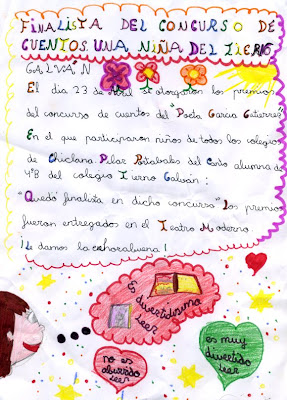 FINALISTA DEL CONCURSO DE
CUENTOS UNA NIÑA DEL TIERNO
GALVÁN
El día 23 de Abril se otorgaron los premios
del concurso de cuentos del "Poeta García Gutierrez"
En el que participaron niños de todos los colegios
de Chiclana. Pilar del alumna de
4ºB del colegio Tierno Galván:
"Quedó finalista en dicho concurso" Los premios
fueron entregados en el Teatro Moderno
¡Le damos la enhorabuena!
Es
divertidísimo
leer
no es
aburrido
leer
es muy
divertido
leer